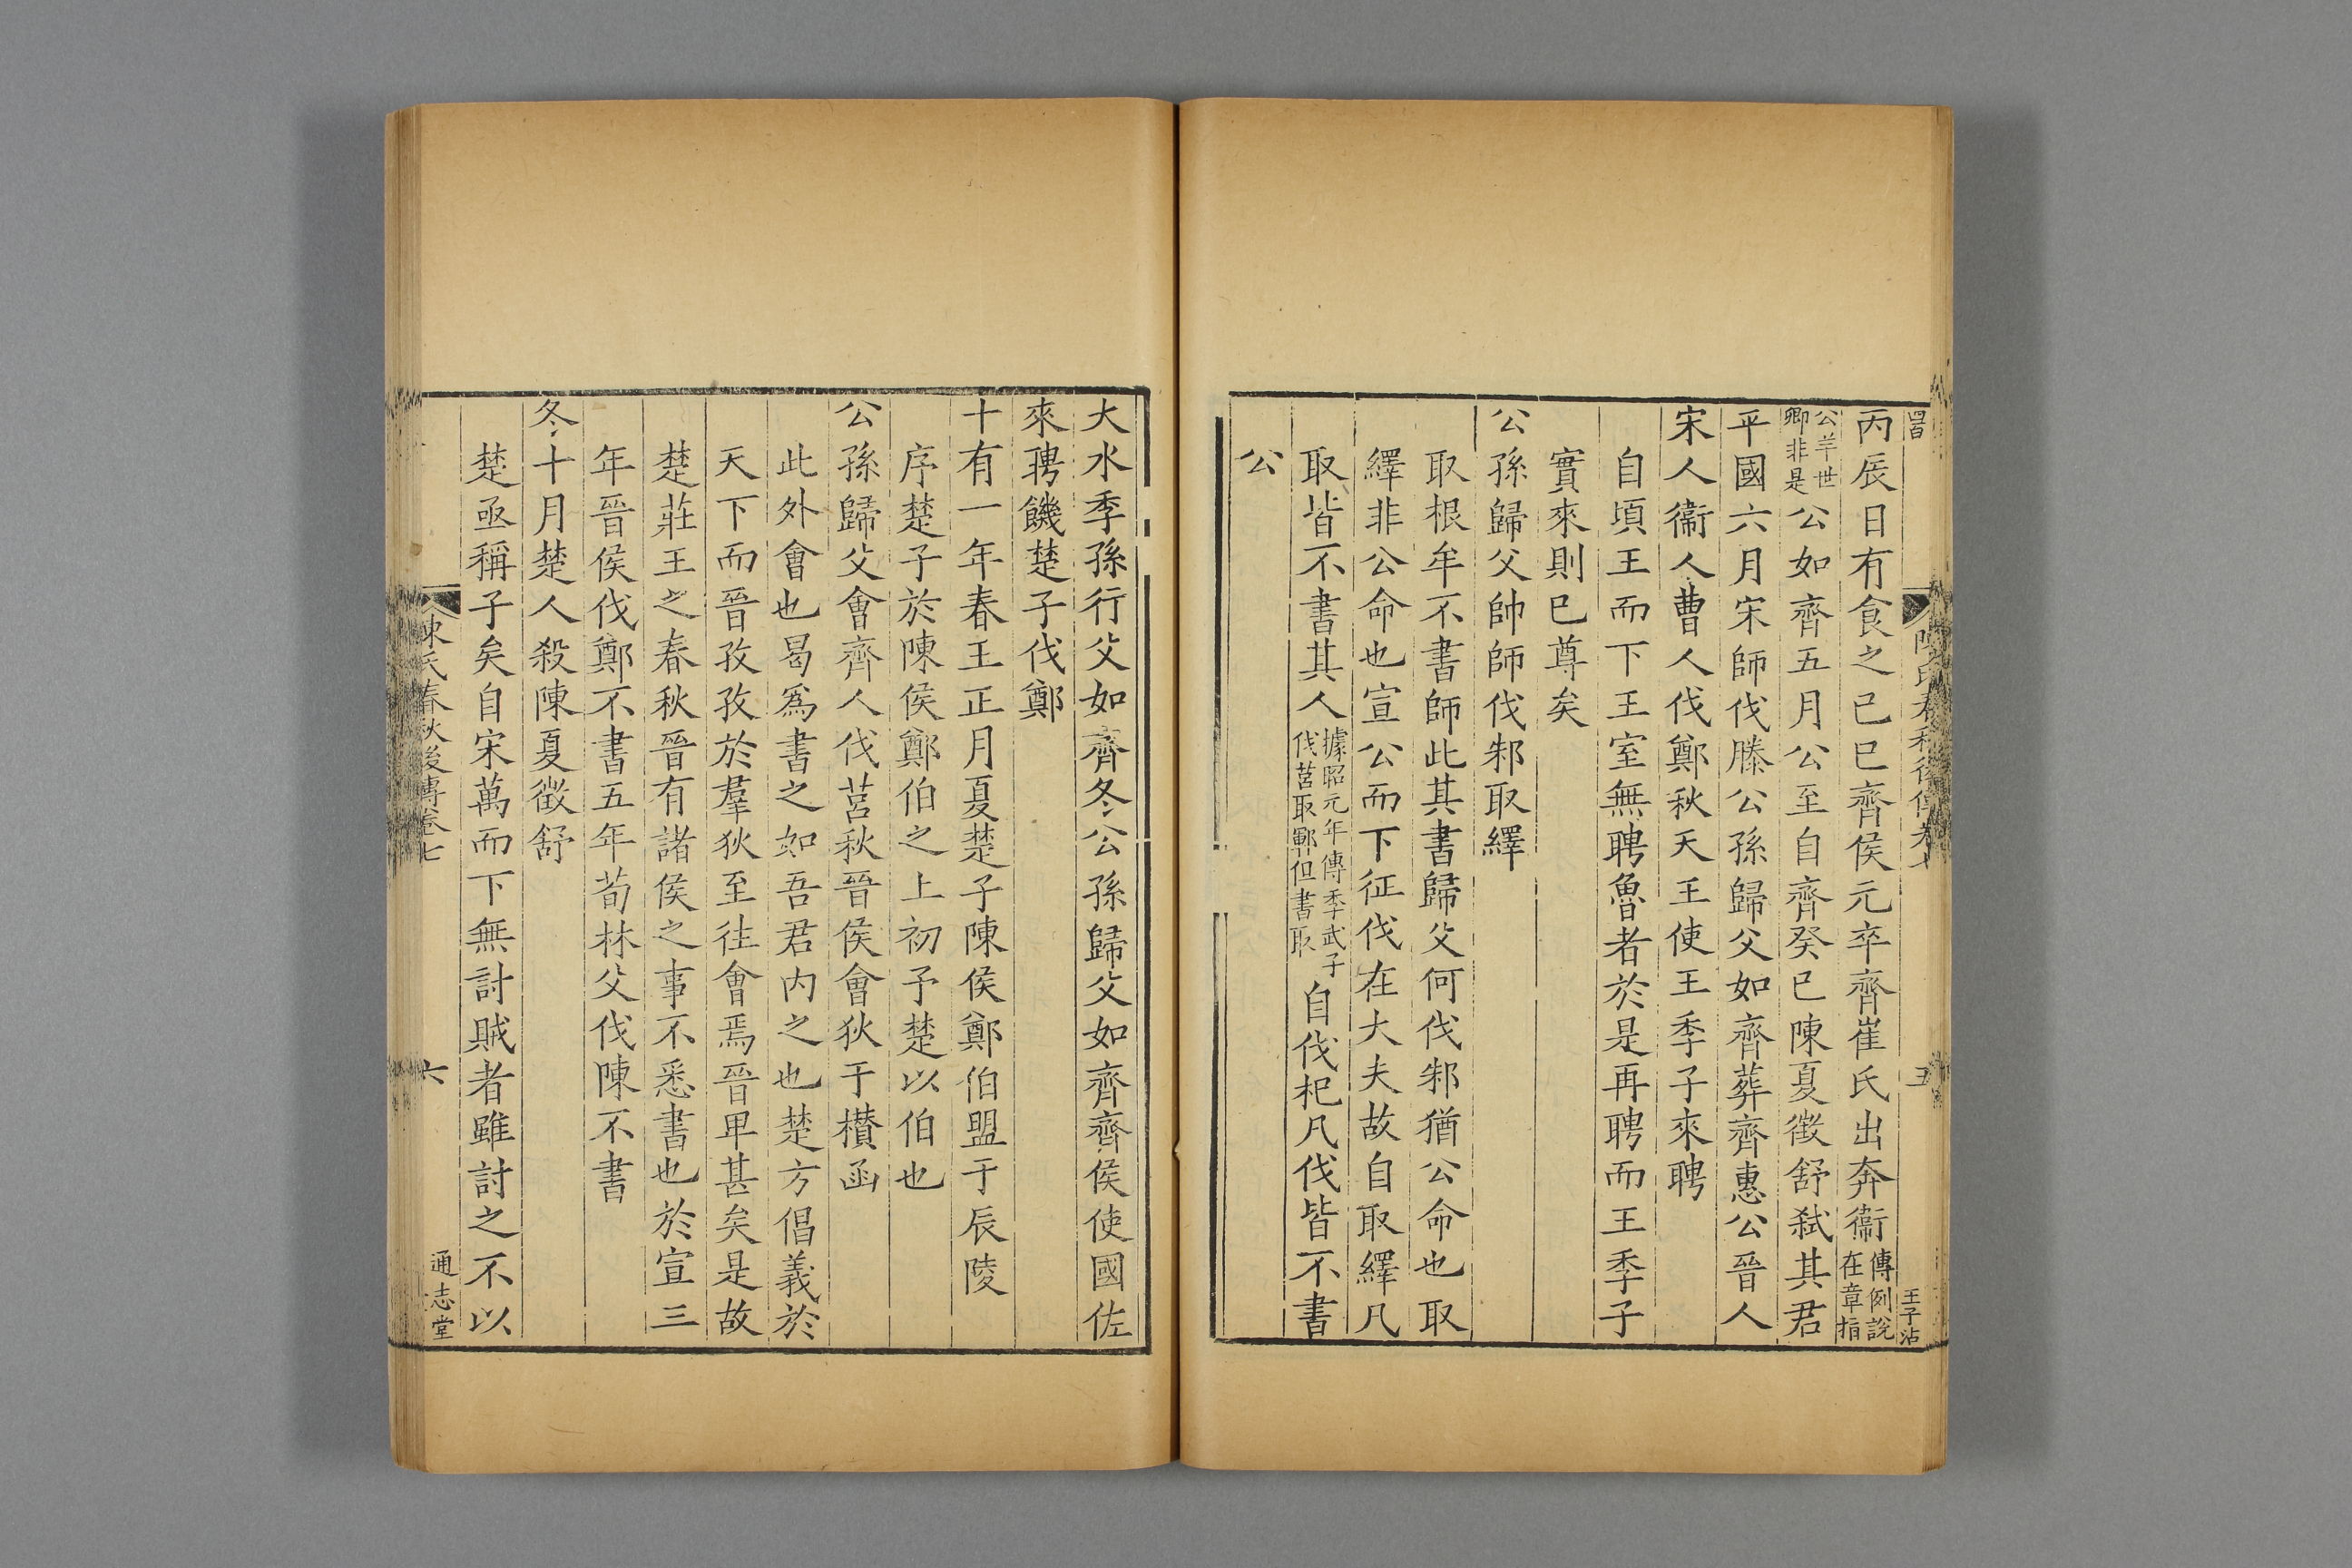 丙辰日有食之己巳齊侯元卒齊崔氏出奔衞傳例說在章指
公羊世卿非是公如齊五月公至自齊癸巳陳夏徵舒弑其君
平國六月宋師伐滕公孫歸父如齊葬齊惠公晉人
宋人衞人曹人伐鄭秋天王使王季子來聘
自頃王而下王室無聘魯者於是再聘而王季子
實來則已尊矣
公孫歸父帥師伐邾取繹
取根牟不書師此其書歸父何伐邾猶公命也取
繹非公命也宣公而下征伐在大夫故自取繹凡
取皆不書其人據昭元年傳季武子伐莒取鄆但書取自伐杞凡伐皆不書
公
陳氏春秋後傳卷七
五
王子沾
大水季孫行父如齊冬公孫歸父如齊齊侯使國佐
來聘饑楚子伐鄭
十有一年春王正月夏楚子陳侯鄭伯盟于辰陵
序楚子於陳侯鄭伯之上初予楚以伯也
公孫歸父會齊人伐莒秋晉侯會狄于欑函
此外會也曷爲書之如吾君内之也楚方倡義於
天下而晉孜孜於羣狄至往會焉晉卑甚矣是故
楚莊王之春秋晉有諸侯之事不悉書也於宣三
年晉侯伐鄭不書五年荀林父伐陳不書
冬十月楚人殺陳夏徵舒
楚亟稱子矣自宋萬而下無討賊者雖討之不以
陳氏春秋後傳卷七
六
通志堂